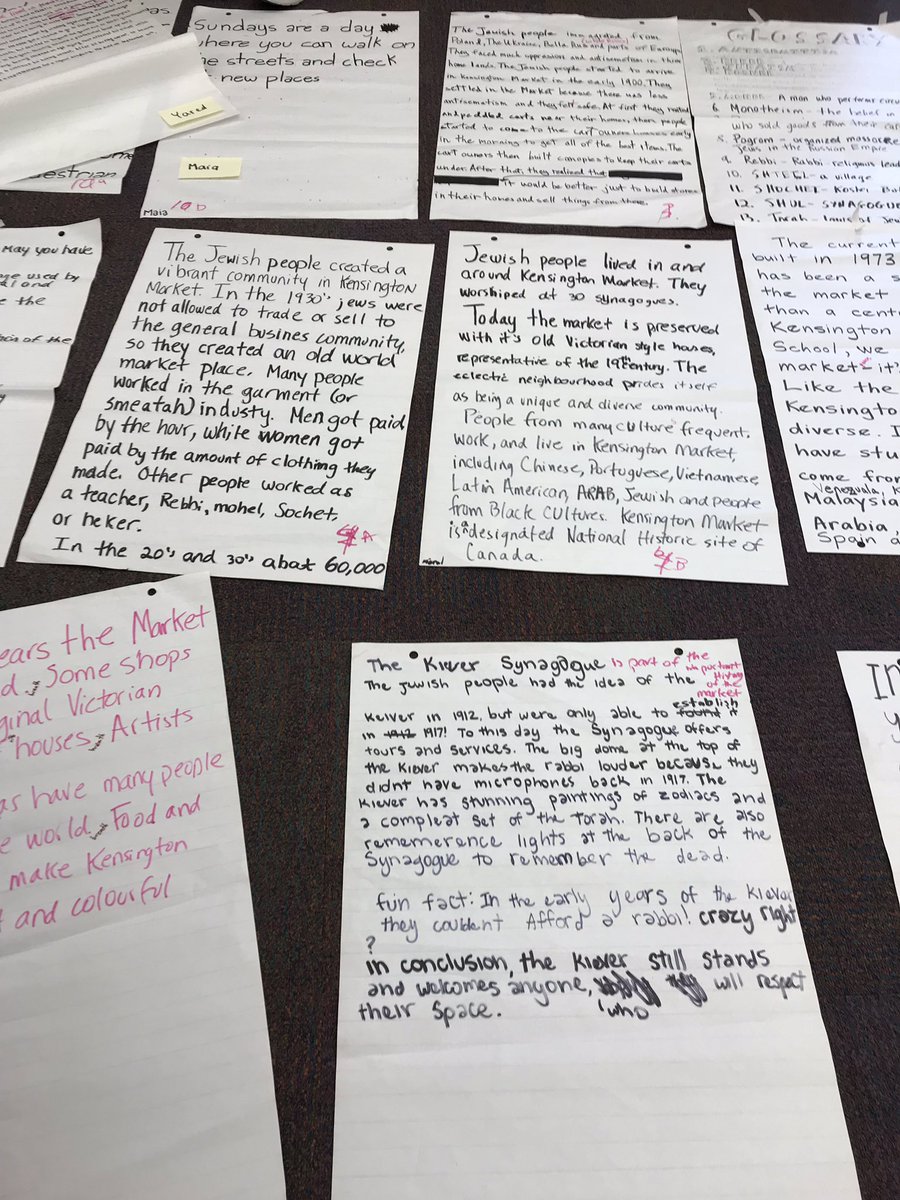 Sundays are a day
where you can walk on
the streets and check
new places
Yared
Maia
Maia
10 D
The Jewish people immigrated from
Poland, The Ukraine, Bella Rus and parts of Europe.
They faced much oppression and antisemetism in their
home lands. The Jewish people started to arrive
in Kensington Market in the early 1900. They
settled in the Market because there was less
antisematism and they felt safe. At first they rented
and peddled carts near their homes, then people
started to come to the cart owners houses early
in the morning to get all of the best items. The
cart owners then built canopies to keep their carts
under. After that, they realized that
it would be better just to build stores
in their homes and sell things from there.
GLOSSARY
A man who performs
6. Monotheism - the belief in
who sold goods from their
8. Pogrom - organized massacre
Jews in the Russian Empire
9. Rebbi - Rabbi - religious
10. SHTEEL - a village
11. SHOCHET - Kosher
12. SHUL - SYNAGOGUE
13. Torah -
May you have
used by
and
the
of the
The Jewish people created a
vibrant community in Kensington
Market. In the 1930's jews were
not allowed to trade or sell to
the general busines community,
so they created an old world
market place. Many people
worked in the garment (or
smeatah) industy. Men got paid
by the hour, while women got
paid by the amount of clothing they
made. Other people worked as
a teacher, Rebbi, mohel, Sochet,
or heker.
In the 20's and 30's abat 60,000
Jewish people lived in and
around Kensington Market. They
worshiped at 30 synagogues.
Today the market is preserved
with it's old Victorian style houses,
representative of the 19th century. The
eclectic neighbourhood prides itself
as being a unique and diverse community.
People from many culture frequent,
work, and live in Kensington Market,
including Chinese, Portuguese, Vietnamese
Latin American, ARAB, Jewish and people
from Black CULTURES. Kensington Market
is a designated National Historic site of
Canada.
The current
built in 1973
has been a
the market
than a
Kensington
School, we
market it's
Like the
Kensington
diverse. I
have
come from
Venezuela,
Malaysia
Arabia,
Spain
ears the Market
d. Some shops
ginal Victorian
houses, Artists
as have many people
e world. Food and
make Kensington
t and colourful
The Kiever Synagogue is part of the
important
History
of the
market
The Jewish people had the idea of the
establish
Keiver in 1912, but were only able to found it
in 1912 1917! To this day the Synagogue offers
tours and services. The big dome at the top of
the Kiever makes the rabbi louder because they
didnt have microphones back in 1917. The
Kiever has stunning paintings of zodiacs and
a compleat set of the Torah. There are also
rememerence lights at the back of the
Synagogue to remember the dead.
fun fact: In the early years of the Kiever
they couldent Afford a rabbi! crazy right
?
in conclusion, the Kiever still stands
and welcomes anyone, will respect
who
their space.